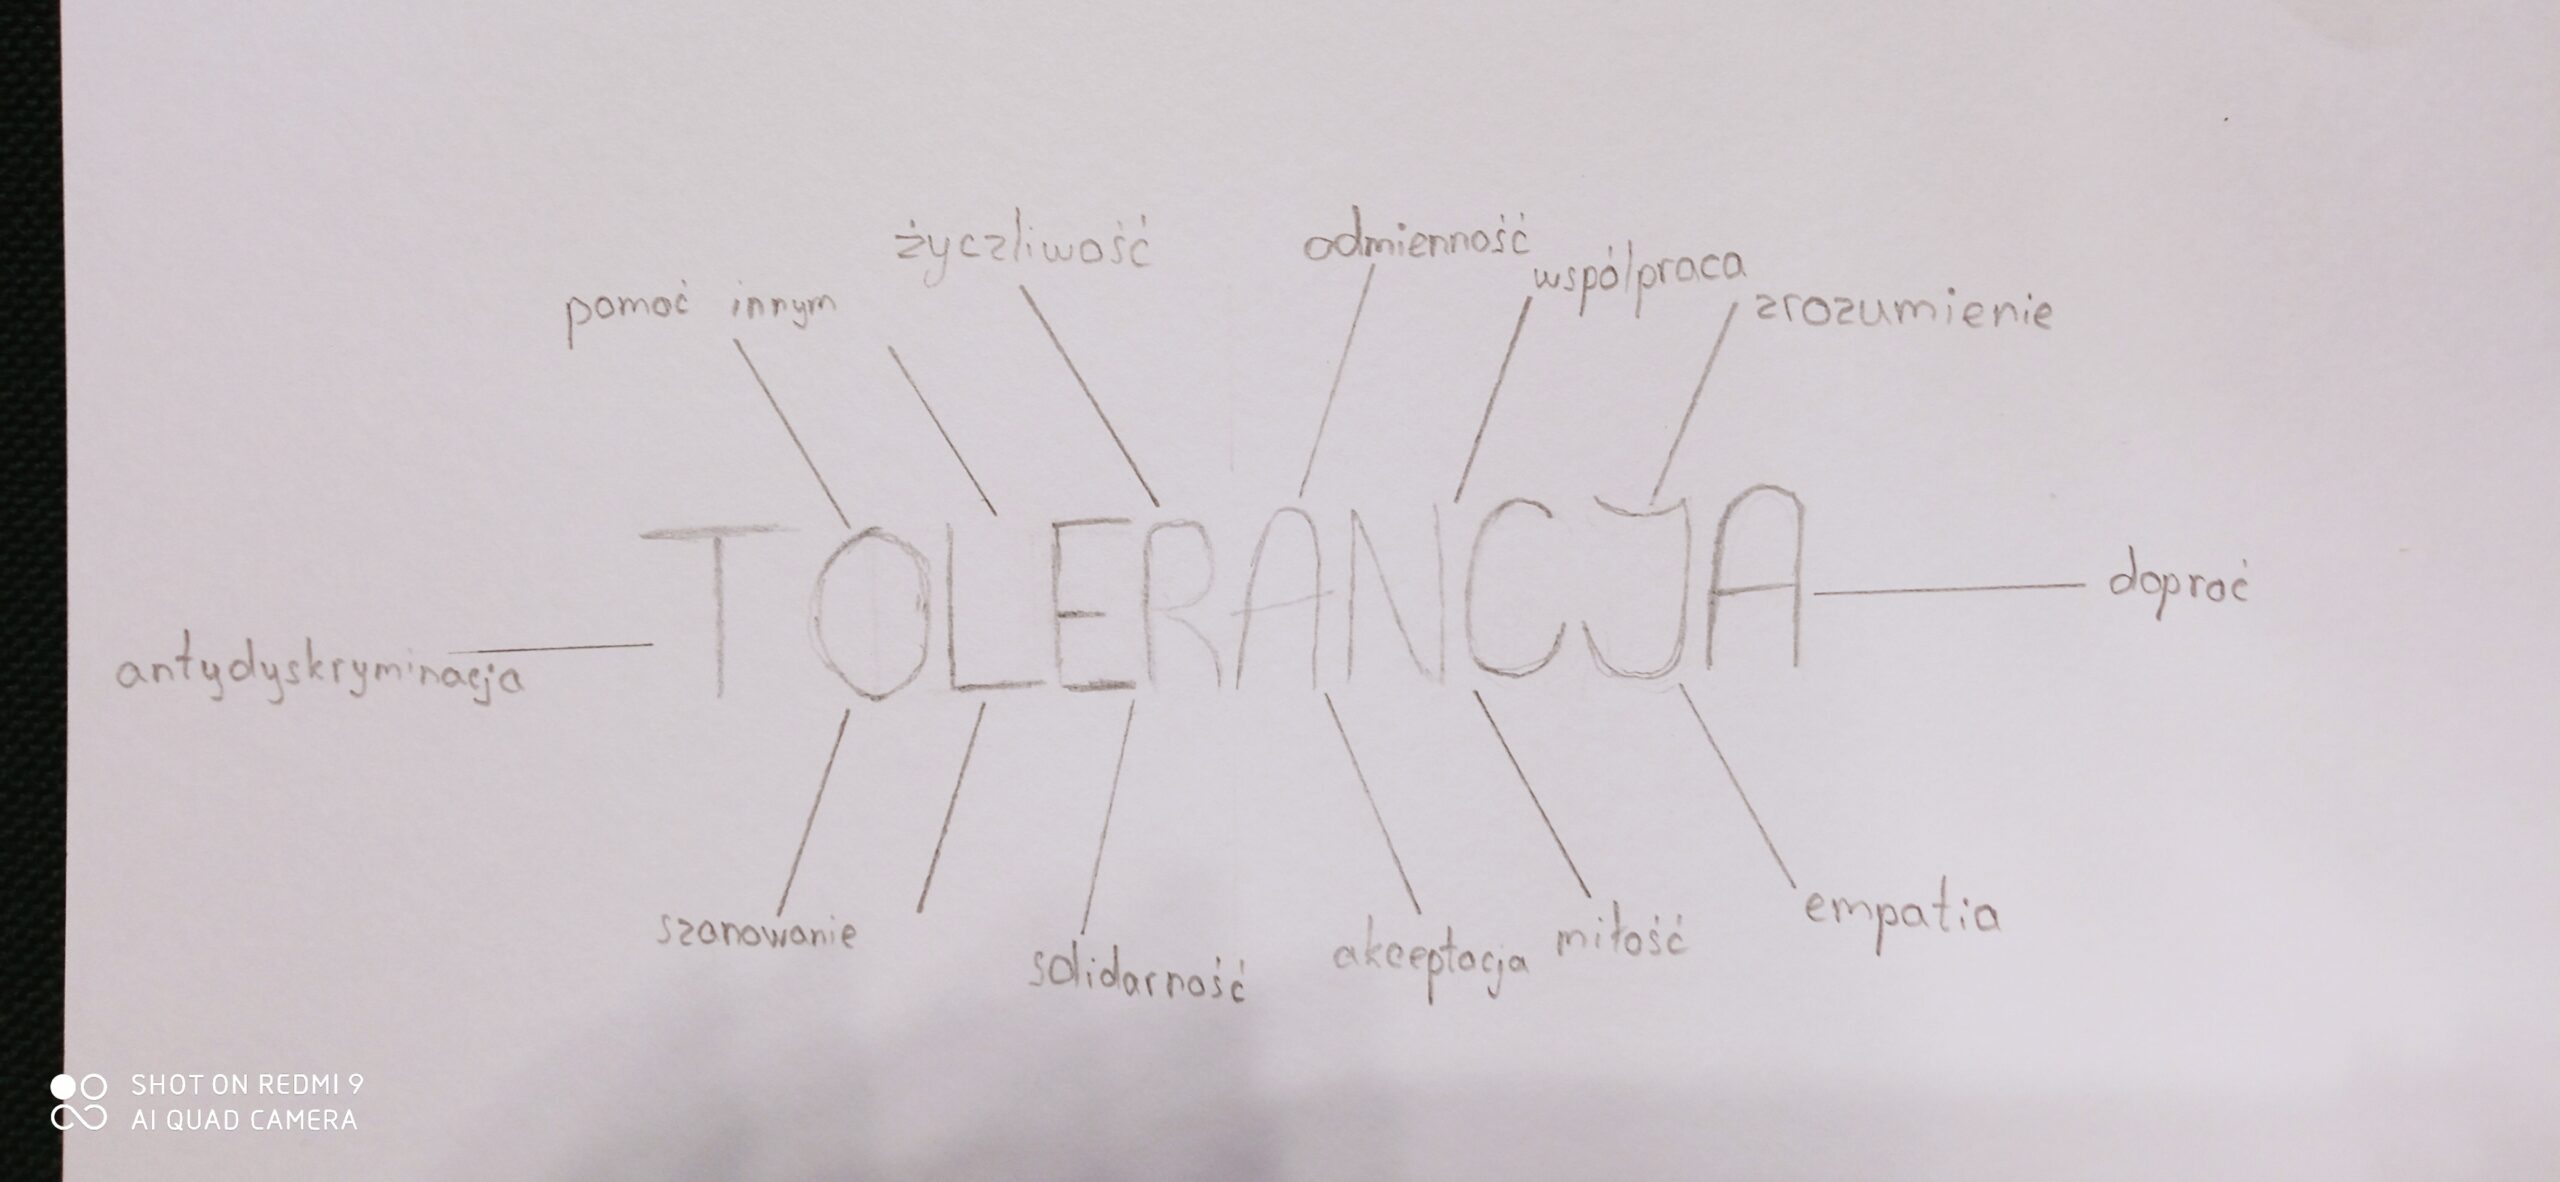 życzliwość
odmienność
współpraca
pomoć innym
zrozumienie
TOLERANCJA
doproć
antydyskryminacja
szanowanie
solidarność
akceptacja
miłość
empatia
SHOT ON REDMI 9
AI QUAD CAMERA